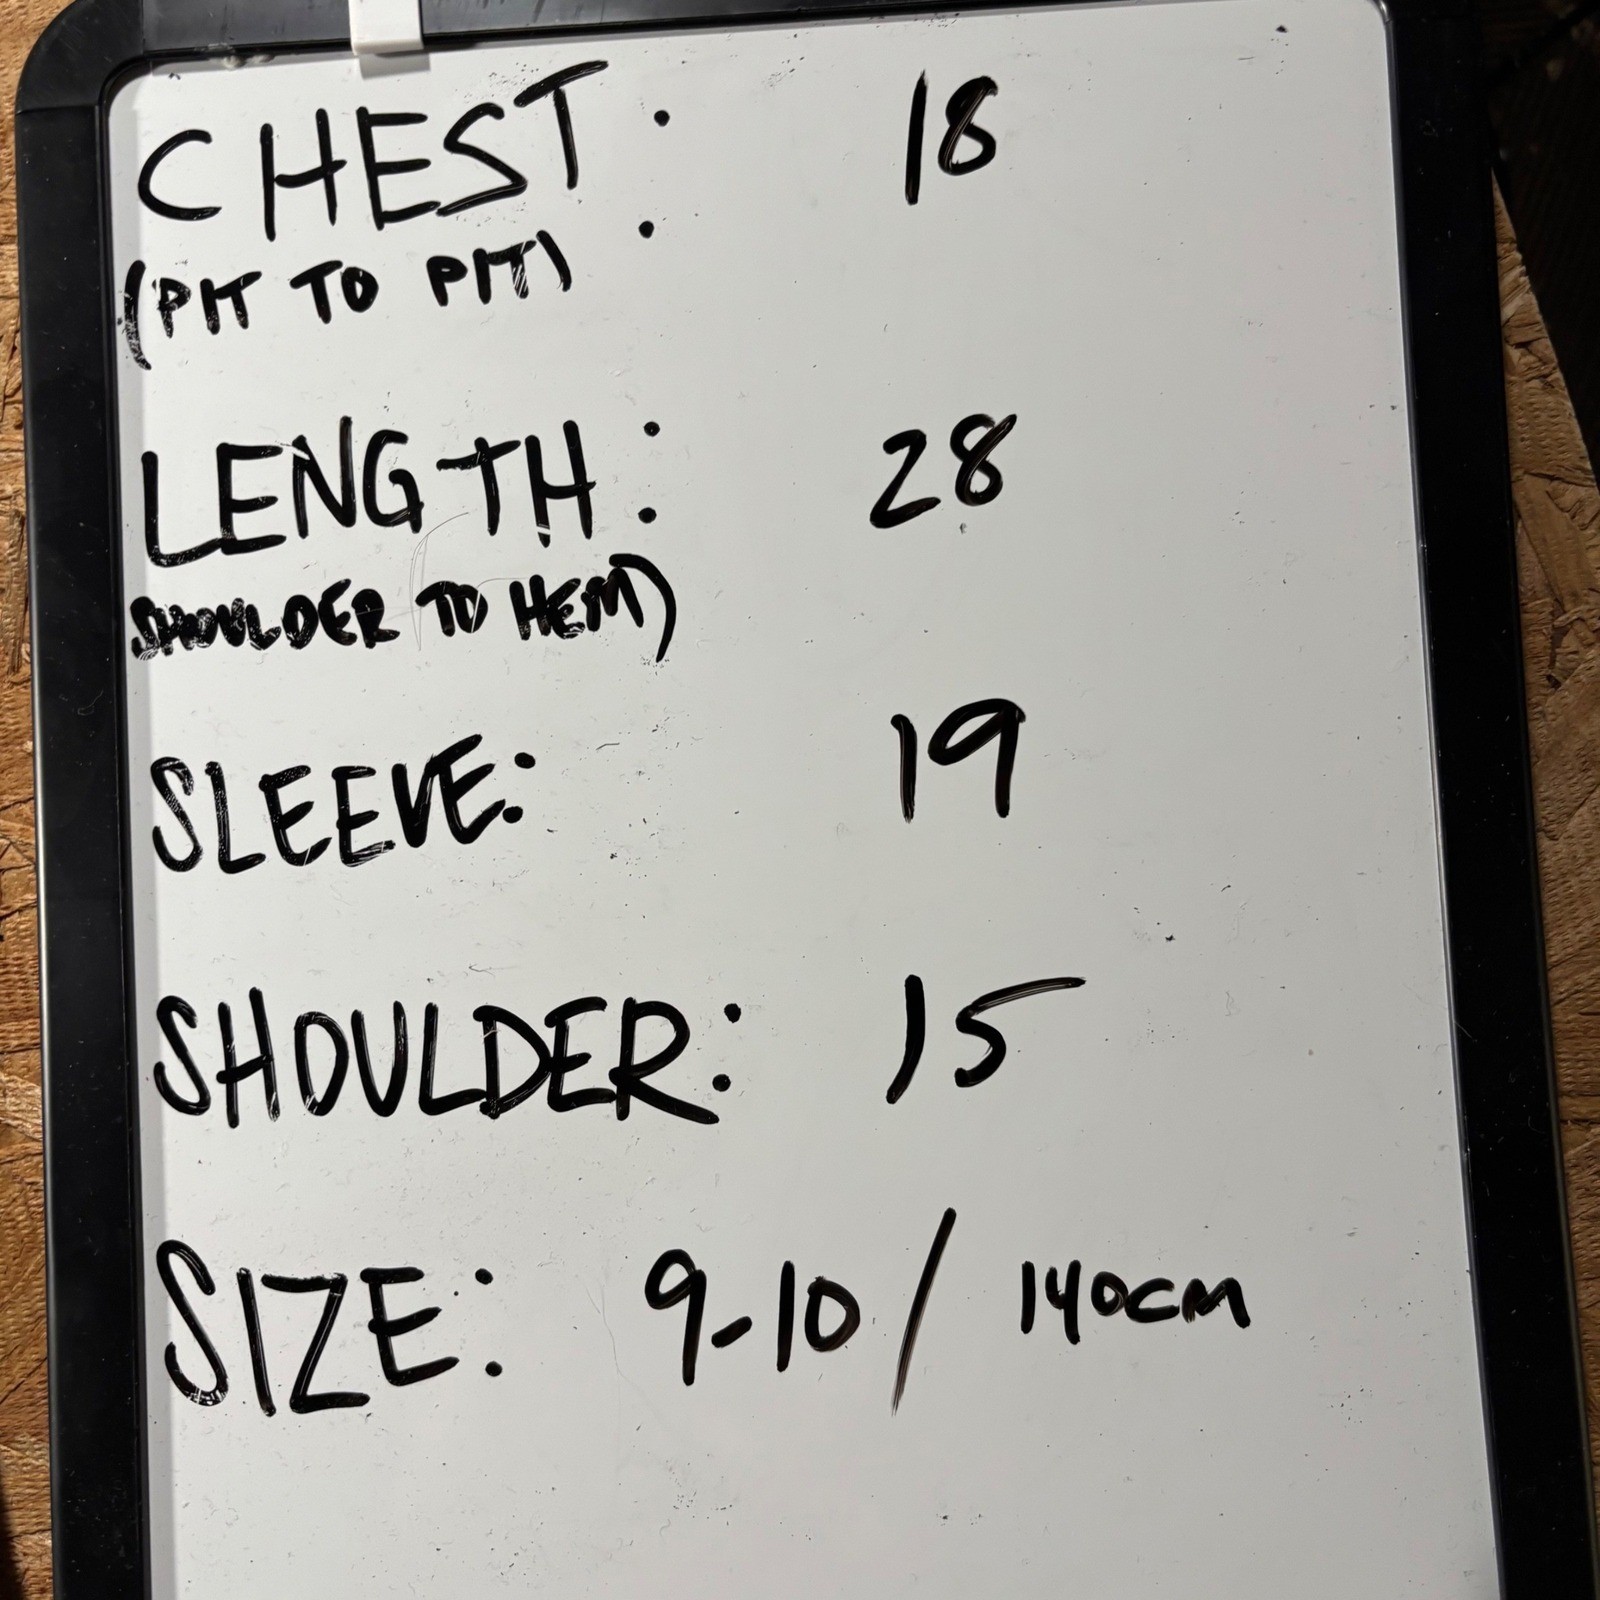 CHEST: 18
(PIT TO PIT)
LENGTH: 28
SHOULDER TO HEM)
SLEEVE: 19
SHOULDER: 15
SIZE: 9-10 / 140cm